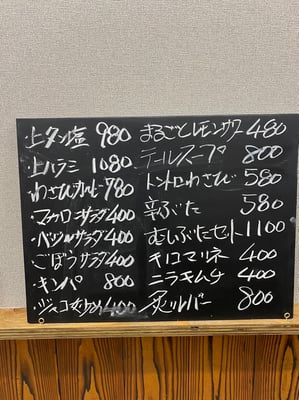 ・上タン塩 980
・上ハラミ 1080
・わさびカルビ 780
・マカロニサラダ 400
・ベジソーサラダ 400
・ごぼうサラダ 400
・キンパ 800
・400
まるごとレモンサワー 480
テールスープ 800
トントロわさび 580
辛ぶた 580
むしぶたセット 1100
キノコマリネ 400
ニラキムチ 400
炙りレバー 800